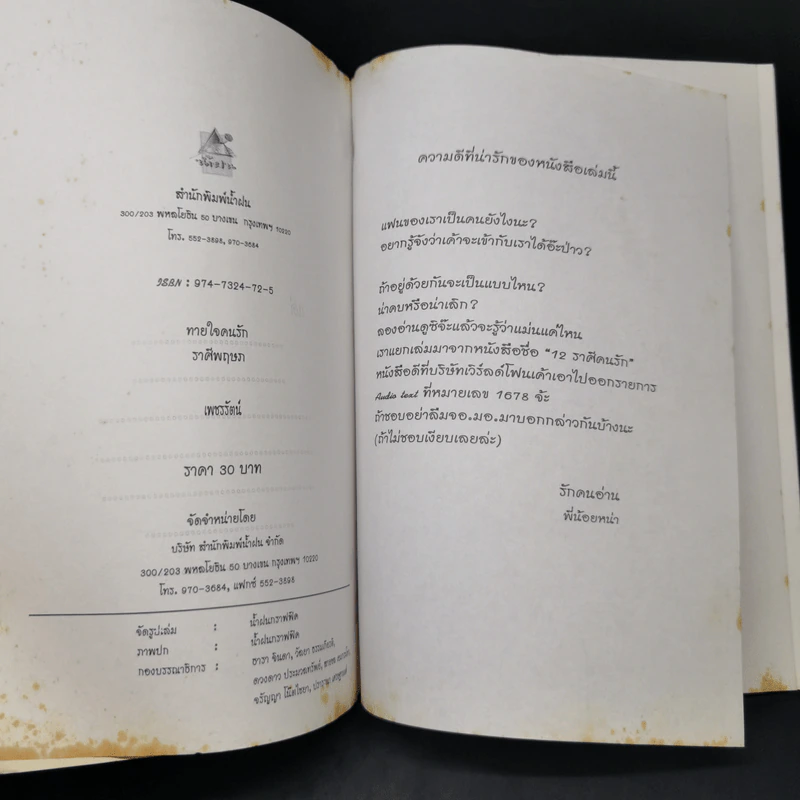 น้ำฝน
สำนักพิมพ์น้ำฝน
300/203 พหลโยธิน 50 บางเขน กรุงเทพฯ 10220
โทร. 552-3898, 970-3684
ISBN : 974-7324-72-5
ทายใจคนรัก
ราศีพฤษภ
เพชรรัตน์
ราคา 30 บาท
จัดจำหน่ายโดย
บริษัท สำนักพิมพ์น้ำฝน จำกัด
300/203 พหลโยธิน 50 บางเขน กรุงเทพฯ 10220
โทร. 970-3684, แฟกซ์ 552-3898
จัดรูปเล่ม : น้ำฝนกราฟฟิค
ภาพปก : น้ำฝนกราฟฟิค
กองบรรณาธิการ : ธารา จินดา,
ดวงดาว ประมวลทรัพย์,
ความดีที่น่ารักของหนังสือเล่มนี้
แฟนของเราเป็นคนยังไงนะ?
อยากรู้จังว่าเค้าจะเข้ากับเราได้อ๊ะป่าว?
ถ้าอยู่ด้วยกันจะเป็นแบบไหน?
น่าคบหรือน่าเลิก?
ลองอ่านดูซิจ๊ะแล้วจะรู้ว่าแม่นแค่ไหน
เราแยกเล่มมาจากหนังสือชื่อ "12 ราศีคนรัก"
หนังสือดีที่บริษัทเวิร์ลด์โฟนเค้าเอาไปออกรายการ
Audio text ที่หมายเลข 1678 จ้ะ
ถ้าชอบอย่าลืมจอ.มอ.มาบอกกล่าวกันบ้างนะ
(ถ้าไม่ชอบเงียบเลยล่ะ)
รักคนอ่าน
พี่น้อยหน่า